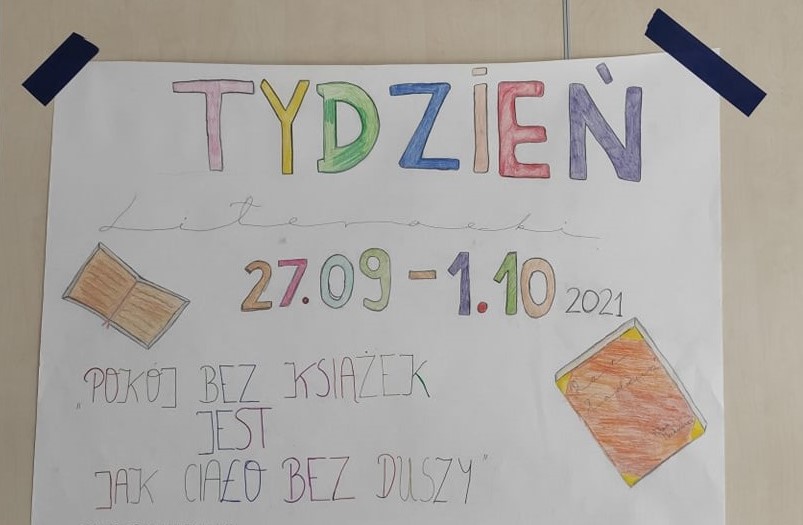 TYDZIEŃ
Literacki
27.09-1.10 2021
„POKÓJ BEZ KSIĄŻEK
JEST
JAK CIAŁO BEZ DUSZY"
Pan
Tadeusz